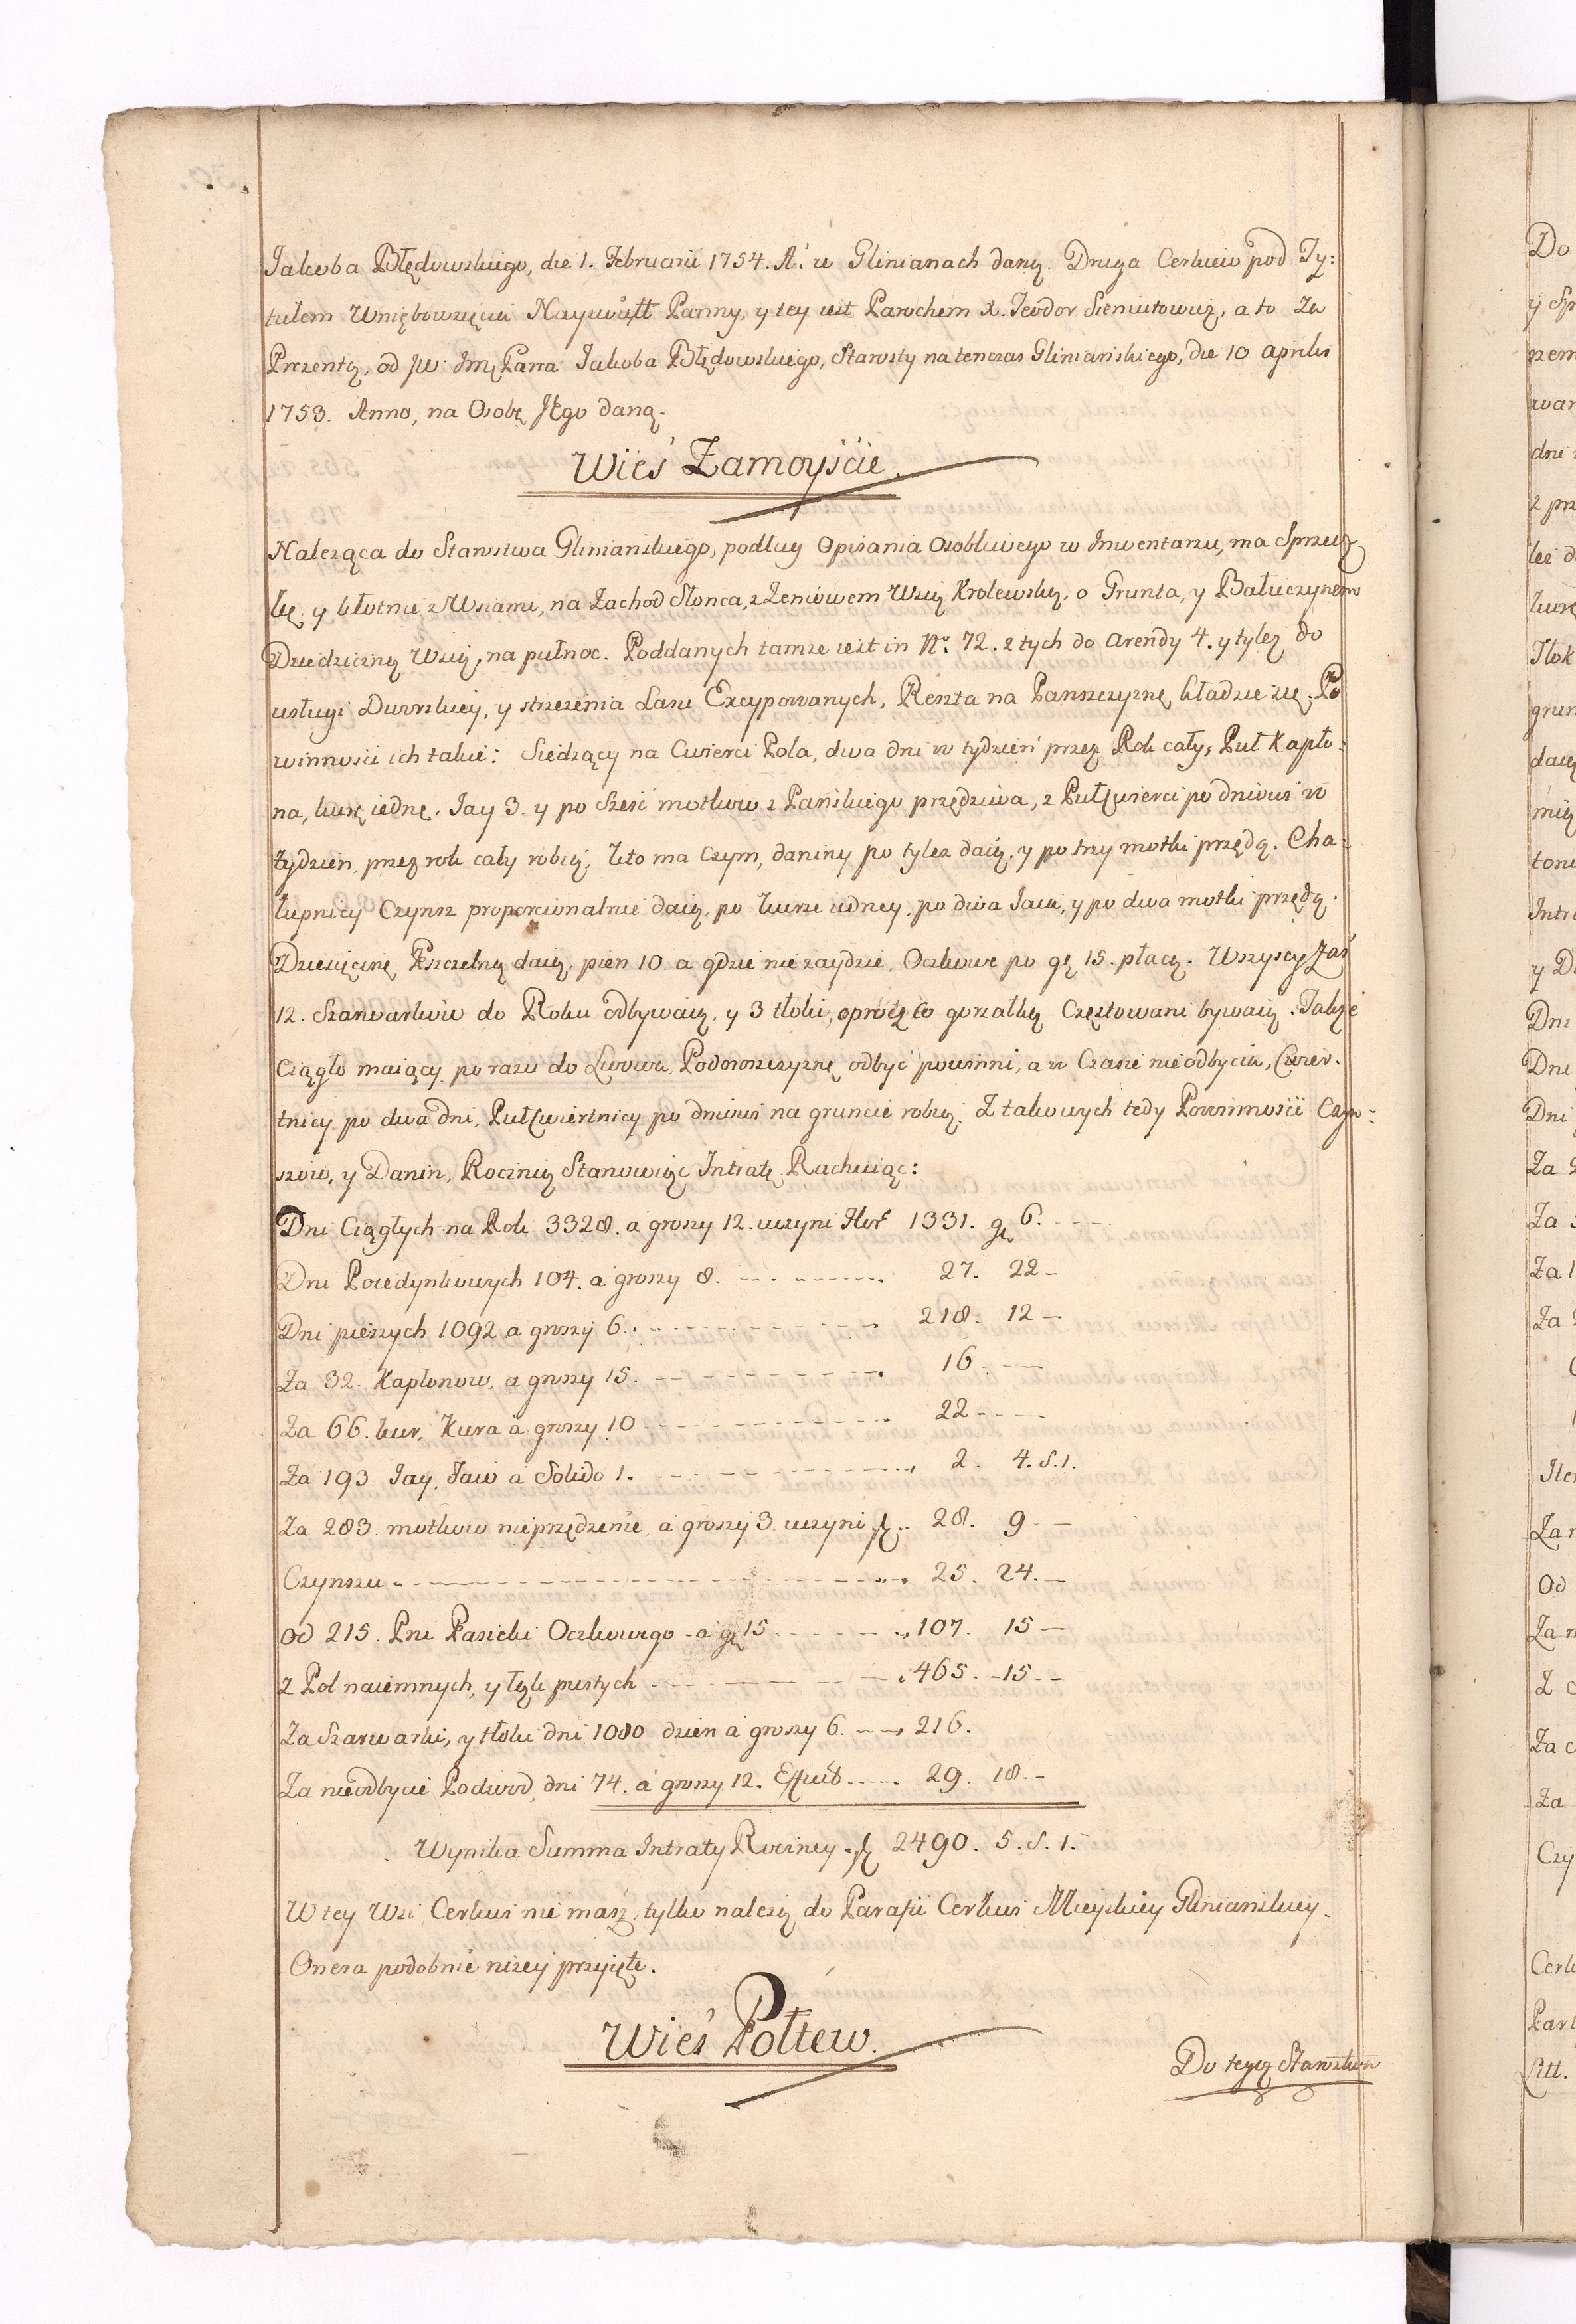 Jakoba Błędowskiego, die 1. Februarii 1754. A: w Glinianach daną. Druga Cerkiew pod Ty:
tułem Wniębowzięcia Nayświętt Panny, y tey iest Parochem X. Teodor Sieniutowicz, a to Za
Prezentą, od JW: Jmę Pana Jakoba Błędowskiego, Starosty natenczas Gliniańskiego, die 10 aprilis
1753. Anno, na Osobę Jego daną.
Wieś Zamoyście.
Należąca do Starostwa Gliniańskiego, podług Opisania Osobliwego w Inwentarzu, ma Sprzecz
kę, y kłotnie z Wsiami, na Zachod Słonca, z Żeniowem Wsią Krolewską, o Grunta, y Bałuczynem
Dziedziczną Wsią, na pułnoc. Poddanych tamże iest in No: 72. z tych do arendy 4. y tyleż do
usługi Dworskiey, y strzeżenia Lasu Excypowanych, Reszta na Panszczyznę kładzie się; Po
winności ich takie: Siedzący na Cwierci Pola, dwa dni w tydzień przez Rok cały, Puł Kapło:
na, kurę iednę, Jay 3. y po Sześć motkow z Pańskiego przędziwa, z Pułćwierci po dniowi w
tydzien, przez rok cały robią, kto ma czym, daniny po tyleż daią, y po trzy motki przędą. Cha:
łupnicy Czynsz proporcionalnie daią, po kurze iedney, po dwa Jaia, y po dwa motki przędą.
Dziesięcinę Pszczelną daią, pien 10. a gdzie nie zaydzie, Oczkowe po gr 15. płacą. Wszyscy Zaś
12. Szarwarkow do Roku odbywaią, y 3 tłoki, oprocz co gorzałką Częstowani bywaią. Także
Ciągło maiący po razu do Lwowa, Podorożczyznę odbyć powinni, a w Czasie nieodbycia, Cwier:
tnicy po dwa dni, Pułćwiertnicy po dniowi na gruncie robią. Z takowych tedy Powinności Czyn:
szow, y Danin, Roczniey Stanowiąc Intratę Rachuiąc:
Dni Ciągłych na Rok 3328. a groszy 12. uczyni Flor 1331. gr 6.
Dni Poiedynkowych 104. a groszy 8. 27. 22
Dni pieszych 1092 a groszy 6. 218. 12
Za 32. Kapłonow, a groszy 15. 16
Za 66. kur, Kura a groszy 10 22
Za 193. Jay, Jaie a Solido 1. 2. 4. S. 1.
Za 283. motkow nieprzędzenie, a groszy 3. uczyni fl. 28. 9
Czynszu 25. 24.
Od 215. Pni Pasieki Oczkowego a gr 15 107. 15
z Pol naiemnych, y łąk pustych 465. 15
Za Szarwarki, y tłoki dni 1080 dzien a groszy 6. 216.
Za nieodbycie Podwod, dni 74. a groszy 12. Efficit 29. 18.
Wynika Summa Intraty Roczney fl 2490. 5. S. 1.
W tey Wsi Cerkwi nie masz, tylko należą do Parafii Cerkwi Mieyskiey Glinianskiey.
Onera podobnie niżey przyięte.
Wieś Połtew.
Do tegoż Starostwa